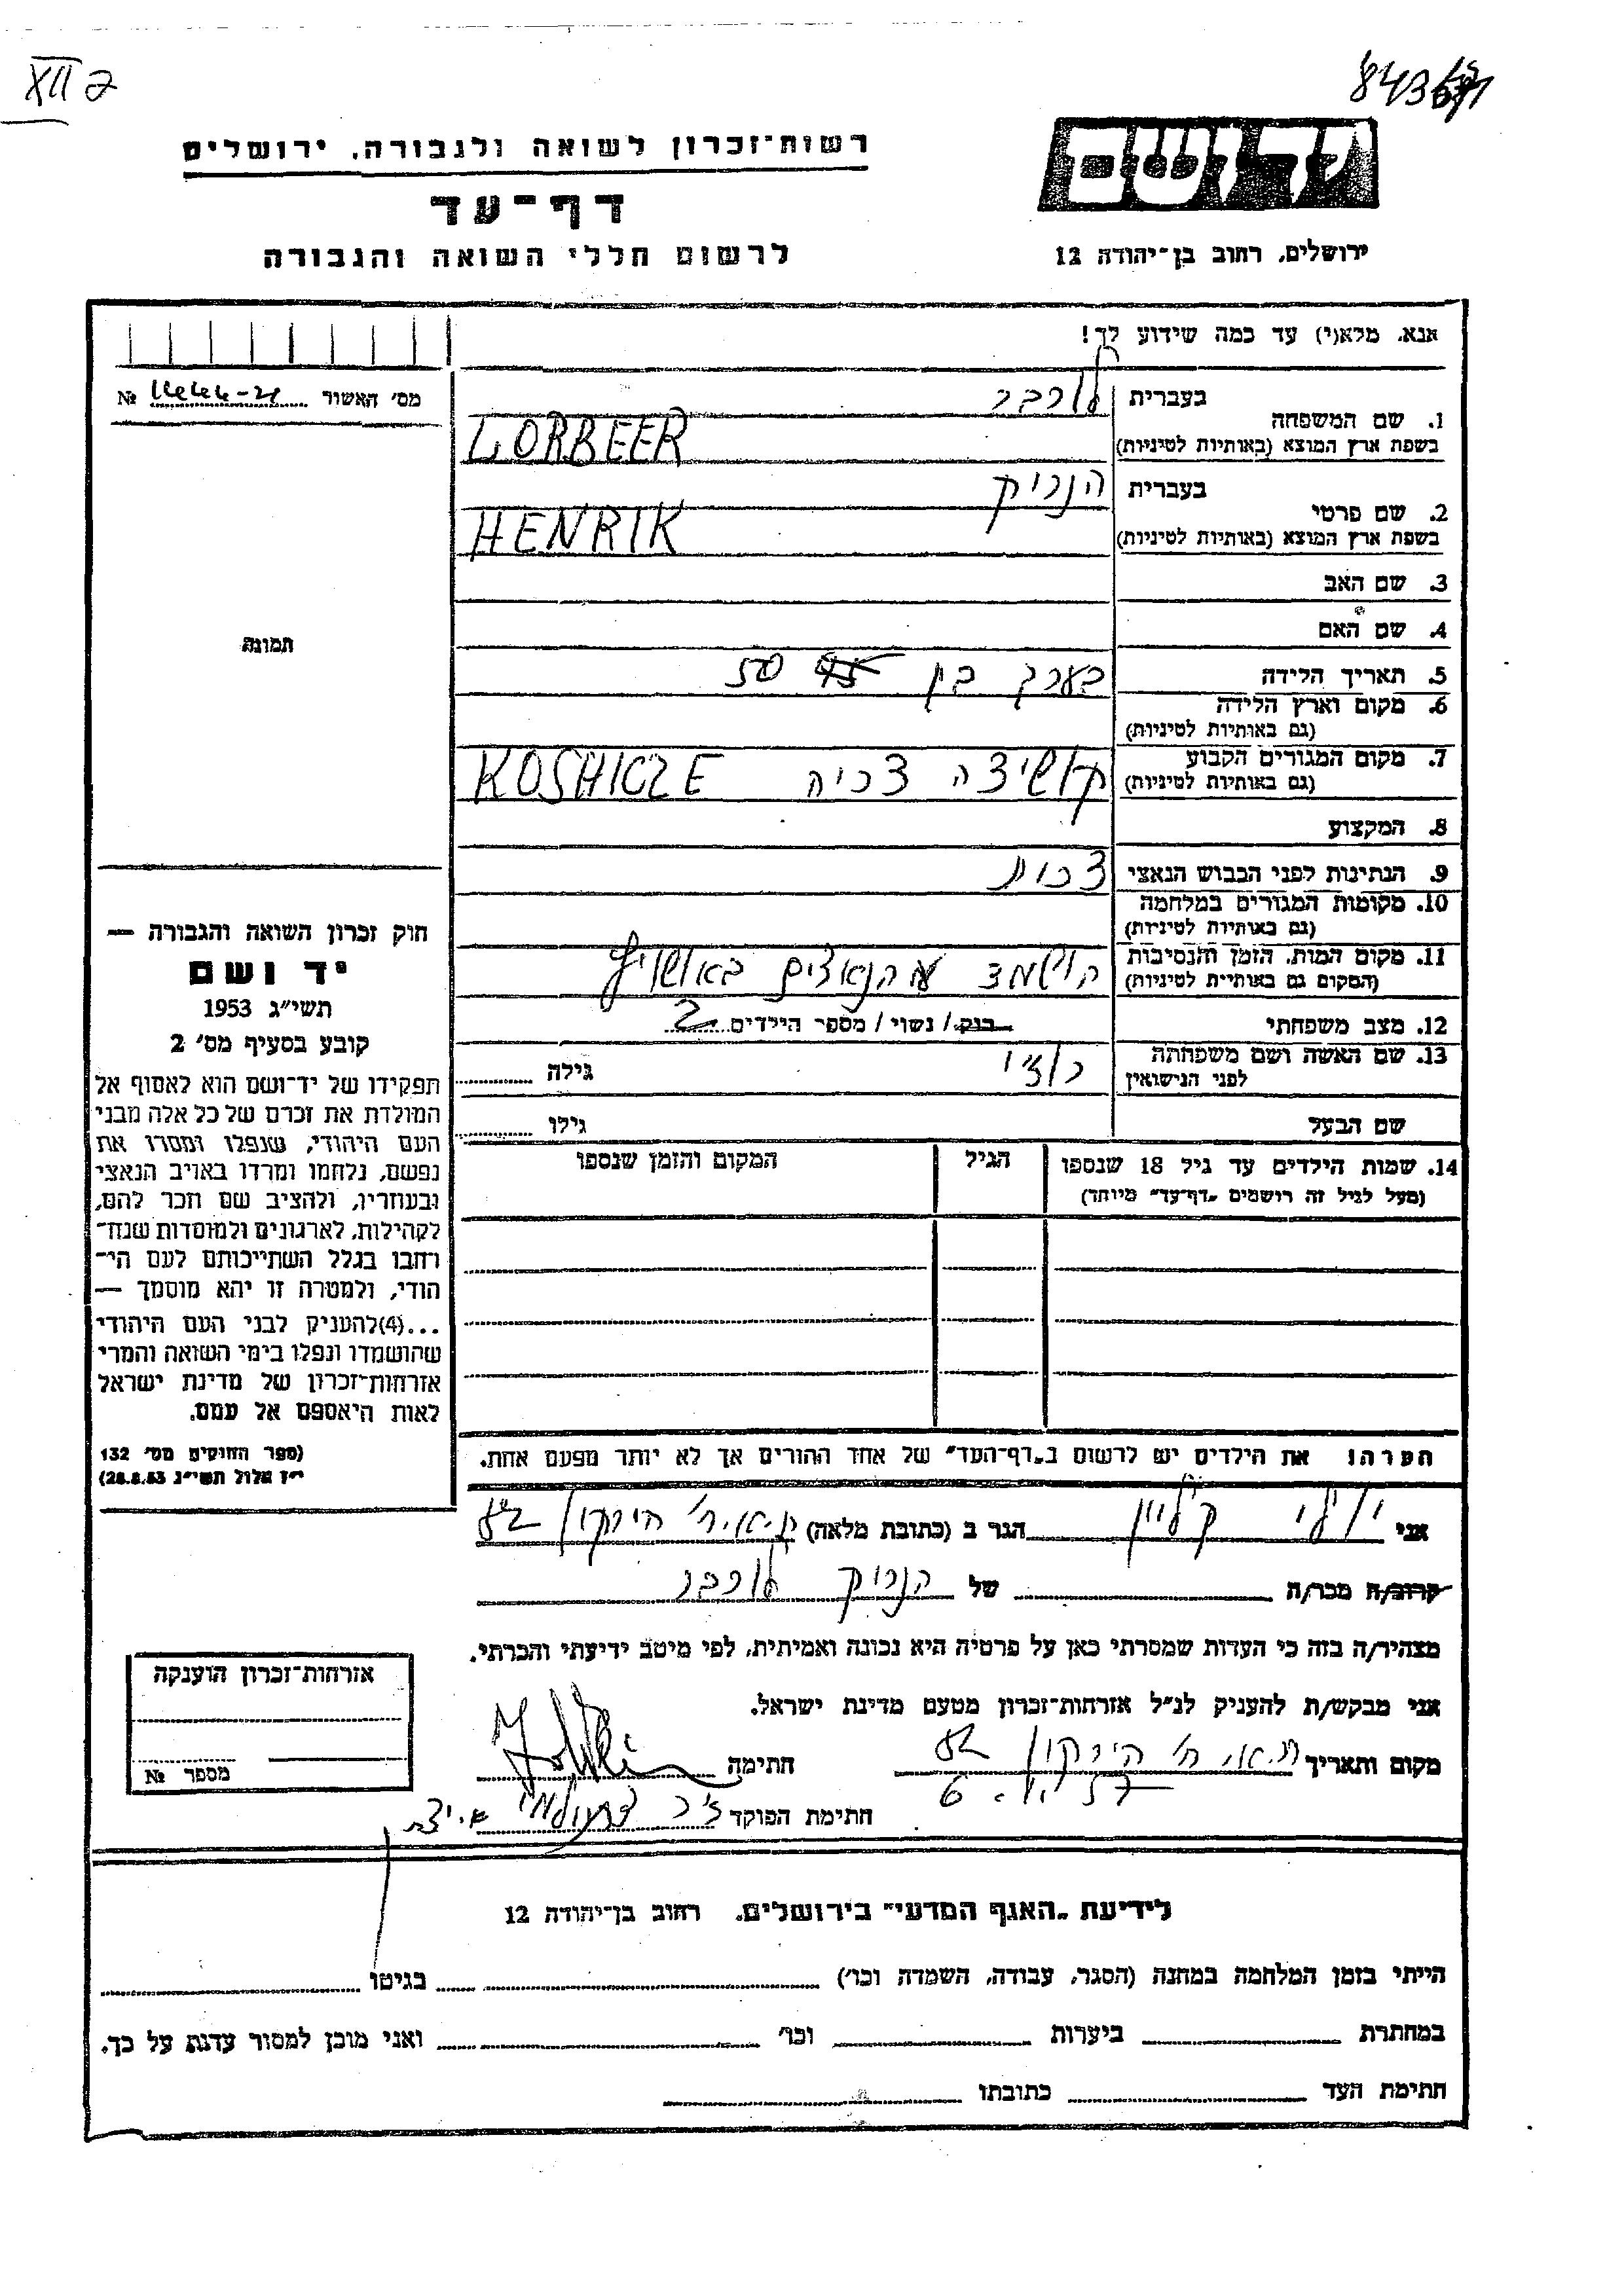 XII ג
רשות־זכרון לשואה ולגבורה, ירושלים
דף־עד
לרשום חללי השואה והגבורה
ידושם
ירושלים, רחוב בן־יהודה 12
אנא, מלא(י) עד כמה שידוע לך!
מס׳ האשור №
בעברית לורבר
1. שם המשפחה
בשפת ארץ המוצא (באותיות לטיניות) LORBEER
בעברית הנריק
2. שם פרטי
בשפת ארץ המוצא (באותיות לטיניות) HENRIK
3. שם האב
4. שם האם
5. תאריך הלידה בערך בן 45 50
6. מקום וארץ הלידה
(גם באותיות לטיניות)
7. מקום המגורים הקבוע
(גם באותיות לטיניות) קושיצה צכיה KOSHICZE
8. המקצוע
9. הנתינות לפני הכבוש הנאצי צכית
10. מקומות המגורים במלחמה
(גם באותיות לטיניות)
11. מקום המות, הזמן והנסיבות
(המקום גם באותיות לטיניות) הושמד מהנאצים באושויץ
12. מצב משפחתי רוק/ נשוי/ מספר הילדים 2
13. שם האשה ושם משפחתה
לפני הנישואין רוזי גילה
שם הבעל גילו
14. שמות הילדים עד גיל 18 שנספו
(מעל לגיל זה רושמים „דף־עד״ מיוחד)
הגיל
המקום והזמן שנספו
הערה! את הילדים יש לרשום ב„דף־העד״ של אחד ההורים אך לא יותר מפעם אחת.
תמונה
חוק זכרון השואה והגבורה —
יד ושם
תשי״ג 1953
קובע בסעיף מס׳ 2
תפקידו של יד־ושם הוא לאסוף אל
המולדת את זכרם של כל אלה מבני
העם היהודי, שנפלו ומסרו את
נפשם, נלחמו ומרדו באויב הנאצי
ובעוזריו, ולהציב שם וזכר להם,
לקהילות, לארגונים ולמוסדות שנח־
רהבו בגלל השתייכותם לעם הי־
הודי, ולמטרה זו יהא מוסמך —
...(4)להעניק לבני העם היהודי
שהושמדו ונפלו בימי השואה והמרי
אזרחות־זכרון של מדינת ישראל
לאות היאספם אל עמם.
(ספר החוקים מס׳ 132
י״ז אלול תשי״ג 28.8.53)
אני יולי קליין הגר ב (כתובת מלאה) ת.א. רח׳ הירקון 82
קרוב/ה מכר/ה של הנריק לורבר
מצהיר/ה בזה כי העדות שמסרתי כאן על פרטיה היא נכונה ואמיתית, לפי מיטב ידיעתי והכרתי.
אני מבקש/ת להעניק לנ״ל אזרחות־זכרון מטעם מדינת ישראל.
מקום ותאריך ת.א. רח׳ הירקון 82 חתימה
חתימת הפוקד
אזרחות־זכרון הוענקה
מספר №
לידיעת „האגף המדעי״ בירושלים, רחוב בן־יהודה 12
הייתי בזמן המלחמה במחנה (הסגר, עבודה, השמדה וכו׳) בגיטו
במחתרת ביערות וכו׳ ואני מוכן למסור עדות על כך.
חתימת העד כתובתו